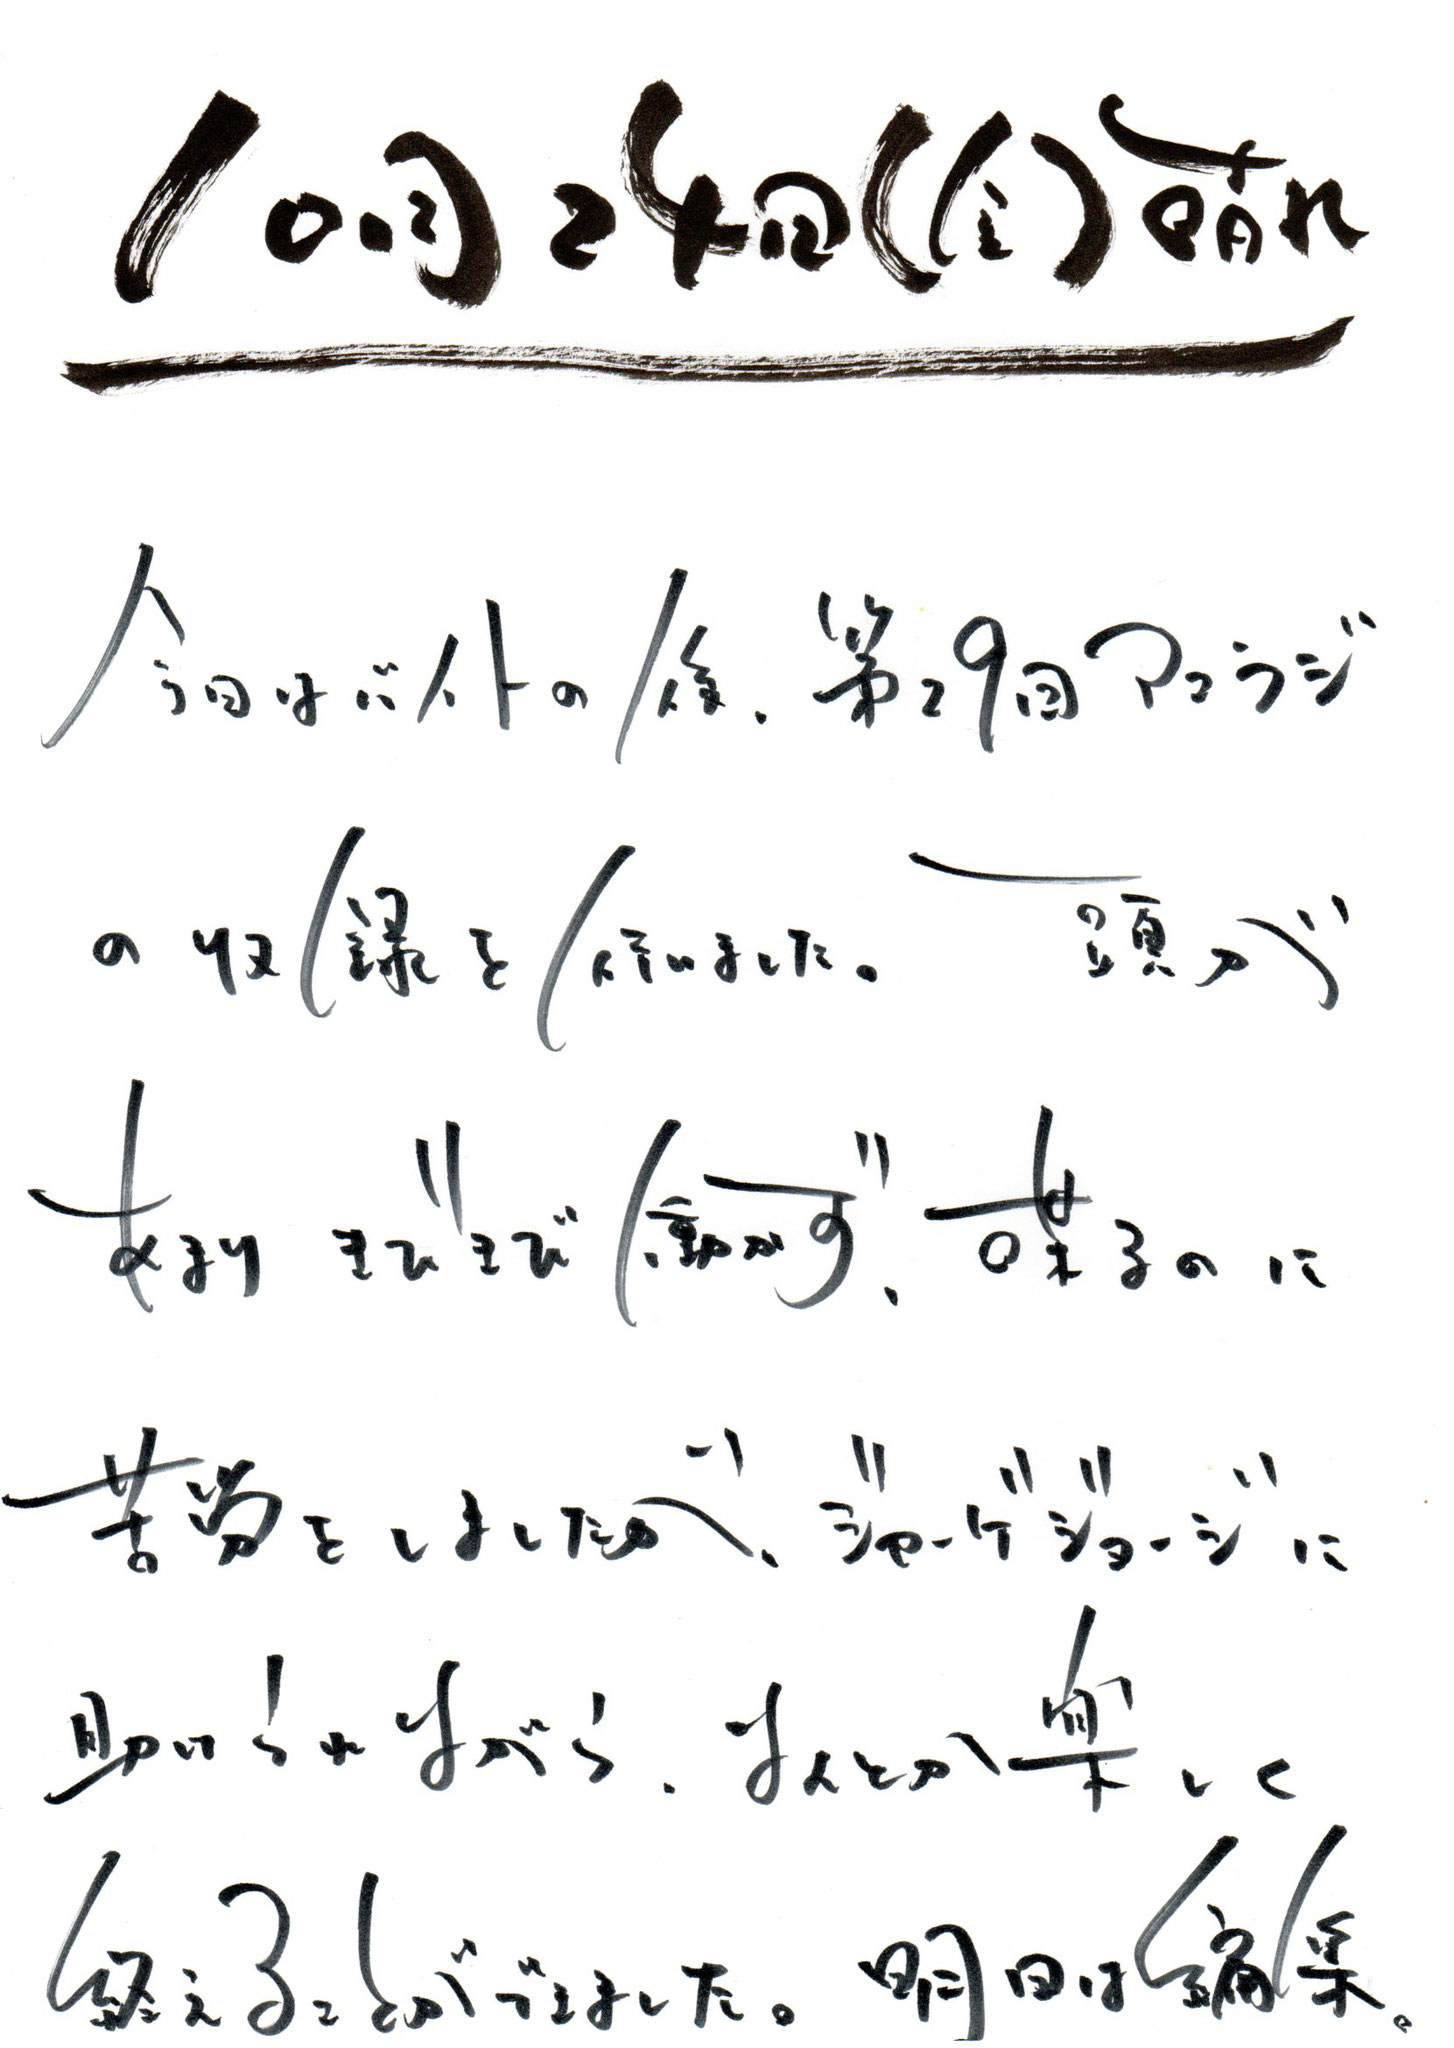 10月24日(金)晴れ
今日はバイトの後、第29回アコラジ
の収録を行いました。頭が
あまりきびきび動かず、喋るのに
苦労をしましたが、ジャーゲジョージに
助けられながら、なんとか楽しく
終えることができました。明日は編集。